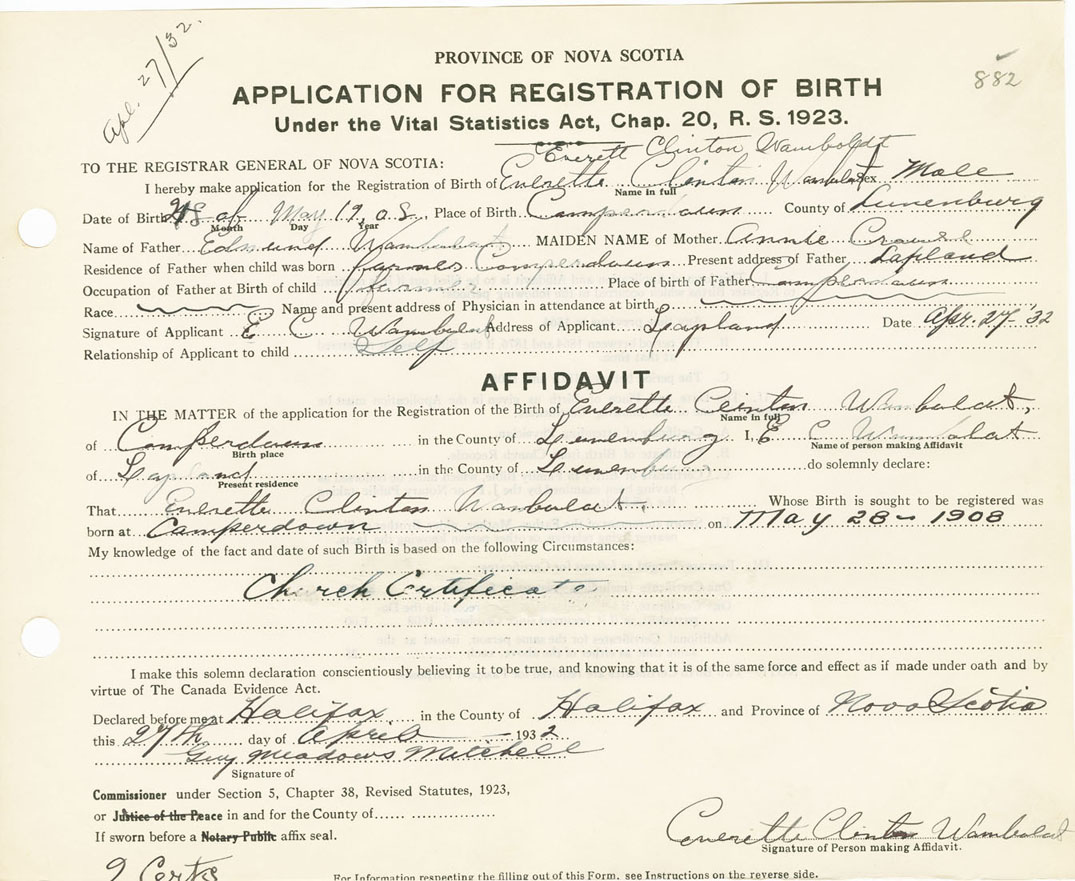 Apl. 27/32.
PROVINCE OF NOVA SCOTIA
882
APPLICATION FOR REGISTRATION OF BIRTH
Under the Vital Statistics Act, Chap. 20, R. S. 1923.
Everett Clinton Wamboldt
TO THE REGISTRAR GENERAL OF NOVA SCOTIA:
I hereby make application for the Registration of Birth of Everette Clinton Wambolat Sex Male
Name in full
Date of Birth 28 of May 19, 08. Place of Birth Camperdown County of Lunenburg
Month Day Year
Name of Father Edmund Wambolat MAIDEN NAME of Mother Annie Crouse
Residence of Father when child was born Camperdown Present address of Father Lapland
Occupation of Father at Birth of child farmer Place of birth of Father Camperdown
Race Name and present address of Physician in attendance at birth
Signature of Applicant E C Wambolat Address of Applicant Lapland Date Apr. 27 '32
Relationship of Applicant to child Self
AFFIDAVIT
IN THE MATTER of the application for the Registration of the Birth of Everette Clinton Wambolat,
Name in full
of Camperdown in the County of Lunenburg I, E C Wambolat
Birth place Name of person making Affidavit
of Lapland in the County of Lunenburg do solemnly declare:
Present residence
That Everette Clinton Wambolat. Whose Birth is sought to be registered was
born at Camperdown on May 28 - 1908
My knowledge of the fact and date of such Birth is based on the following Circumstances:
Church Certificate
I make this solemn declaration conscientiously believing it to be true, and knowing that it is of the same force and effect as if made under oath and by
virtue of The Canada Evidence Act.
Declared before me at Halifax, in the County of Halifax and Province of Nova Scotia
this 27th day of April 1932
Guy Meadows Mitchell
Signature of
Commissioner under Section 5, Chapter 38, Revised Statutes, 1923,
or Justice of the Peace in and for the County of
If sworn before a Notary Public affix seal.
Everette Clinton Wambolat
Signature of Person making Affidavit.
2 Certs
For Information respecting the filling out of this Form, see Instructions on the reverse side.